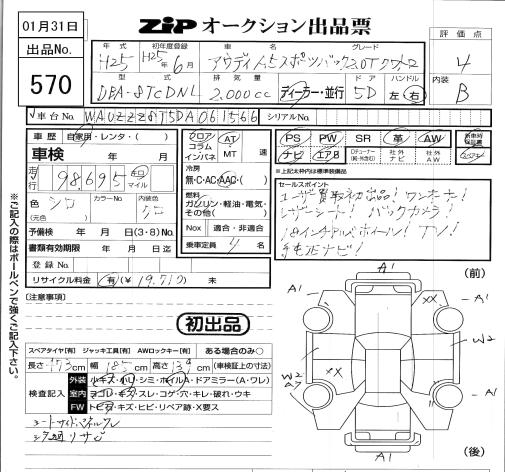 01月31日
ZIP オークション出品票
評価点
出品No.
570
年式 初年度登録 車名 グレード
H25 H25年6月 アウディA5スポーツバック2.0Tクワトロ
4
排気量 ドア ハンドル 内装
DBA-8TCDNL 2,000cc ディーラー・並行 5D 左・右 B
車台No. WAUZZZ8T5DA061566 シリアルNo.
車歴 自家用・レンタ・( ) フロア コラム インパネ AT MT 速
PS PW SR 革 AW 新車時保証書
ナビ エアB Dチューナー(純・社外含) 社外ナビ 社外AW
車検 年 月
※上記太枠内は標準装備品
走行 98,695 キロ マイル
冷房 無・C・AC・AAC・( )
セールスポイント
色 シロ (元色) カラーNo 内装色 シロ
燃料 ガソリン・軽油・電気・その他( )
ユーザー買取初出品!ワンオーナー!
レザーシート!バックカメラ!
18インチアルミホイール!TV!
予備検 年 月 日(3・8)No.
Nox 適合・非適合
純正ナビ!
書類有効期限 年 月 日迄
乗車定員 4名
登録No.
リサイクル料金 有(¥19,710) 未
【注意事項】
※ご記入の際はボールペンで強くご記入下さい。
初出品
(前)
A1
A1 XX A1
W2 W2
XX
W2
A1
A1
(後)
スペアタイヤ[有] ジャッキ工具[有] AWロックキー[有] ある場合のみ○
長さ 473cm 幅 185cm 高さ 139cm (車検証上の寸法)
検査記入
外装 小キズ・小凹・シミ・ホイルA・ドアミラー(A・ワレ)
室内 ヨゴレ・キズ・スレ・コゲ・穴・キレ・破れ・ウキ
FW トビ石・キズ・ヒビ・リペア跡・X要ス